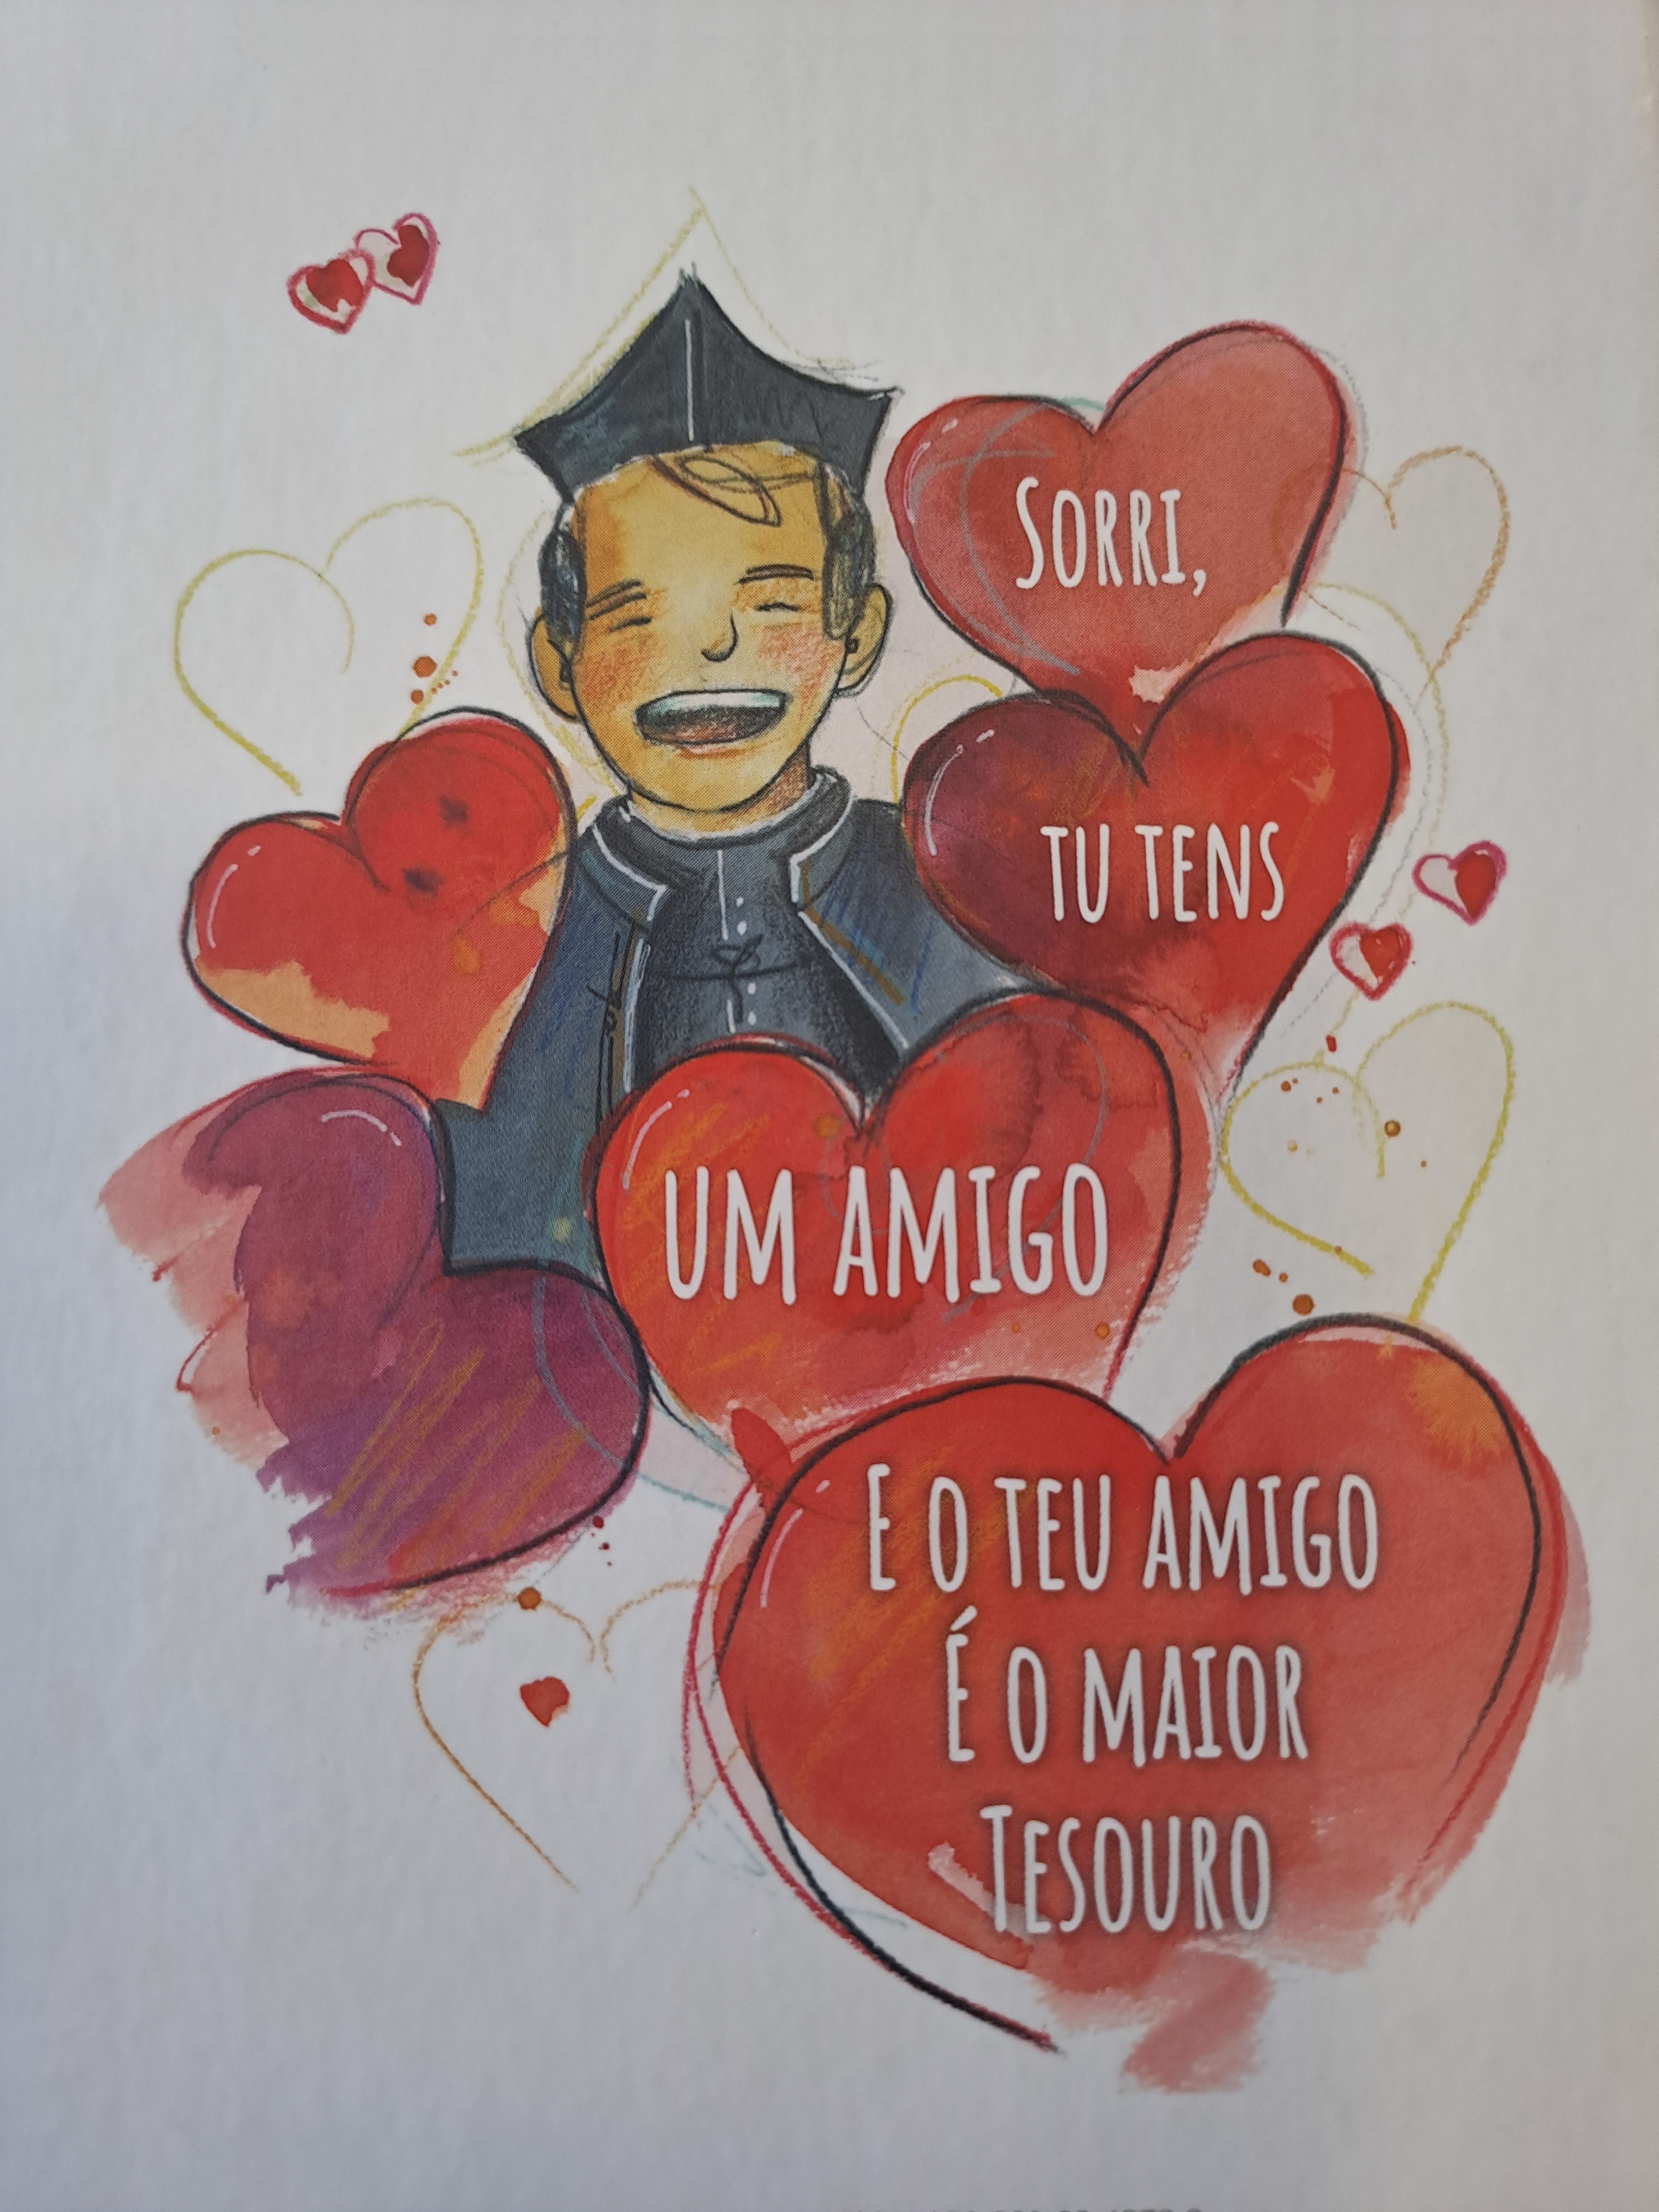 SORRI,
TU TENS
UM AMIGO
E O TEU AMIGO
É O MAIOR
TESOURO